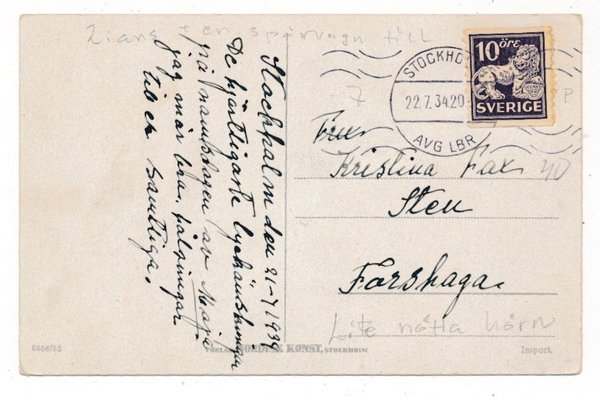 Ziang + en spårvagn till
Stockholm den 21-7 1934
De hjärtligaste lyckönskningar
på namnsdagen av Maja
jag mår bra. hälsningar
till er samtliga.
STOCKHO
22.7.34.20
AVG LBR
10 ÖRE
SVERIGE
7
P
Fru
Kristina Fax
40
Sten
Forshaga.
Lite nötta hörn
6056/52
FÖRLAG NORDISK KONST, STOCKHOLM.
Import.